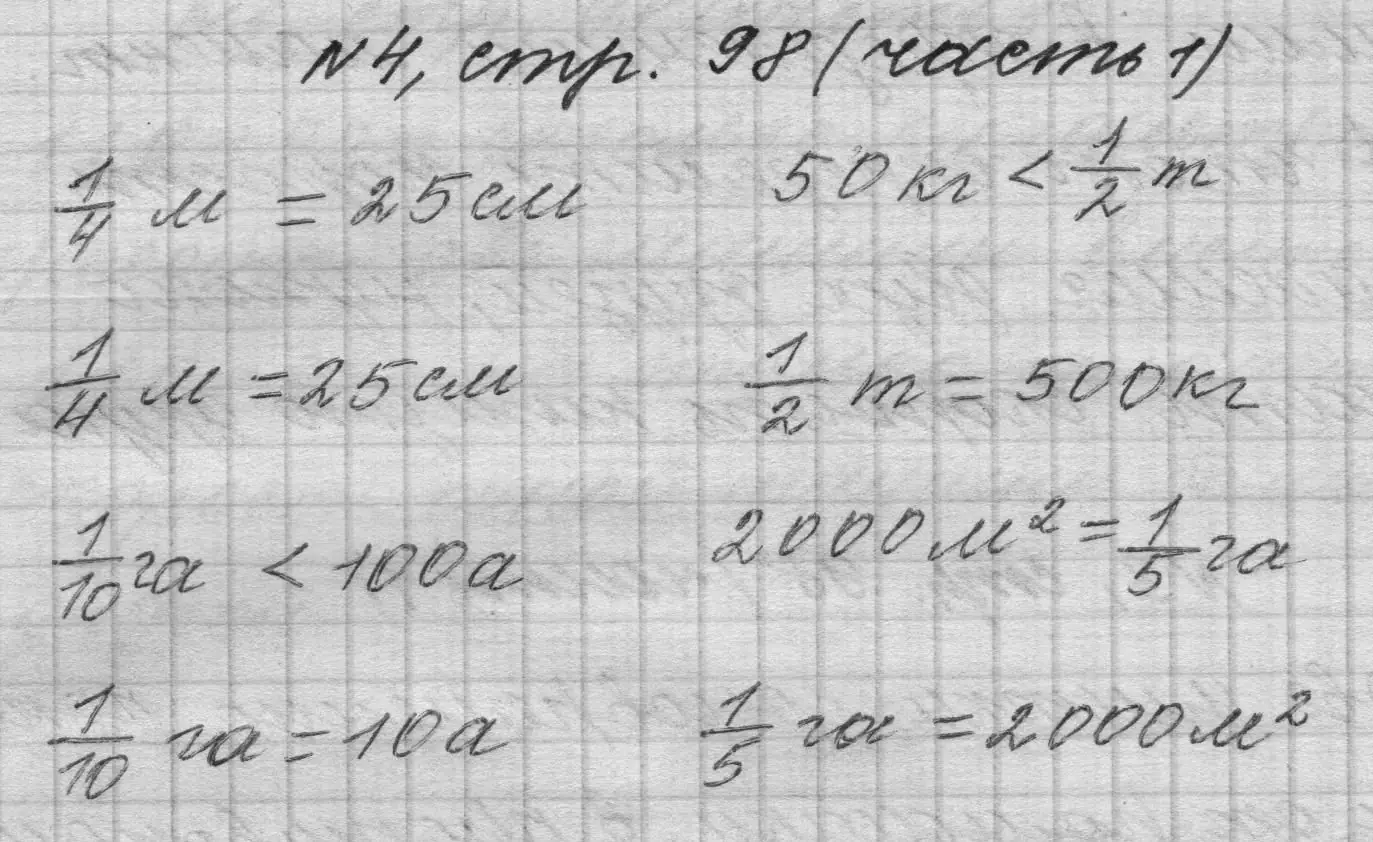 №4, стр. 98 (часть 1)
1/4 м = 25 см
50 кг < 1/2 т
1/4 м = 25 см
1/2 т = 500 кг
1/10 га < 100 а
2000 м² = 1/5 га
1/10 га = 10 а
1/5 га = 2000 м²